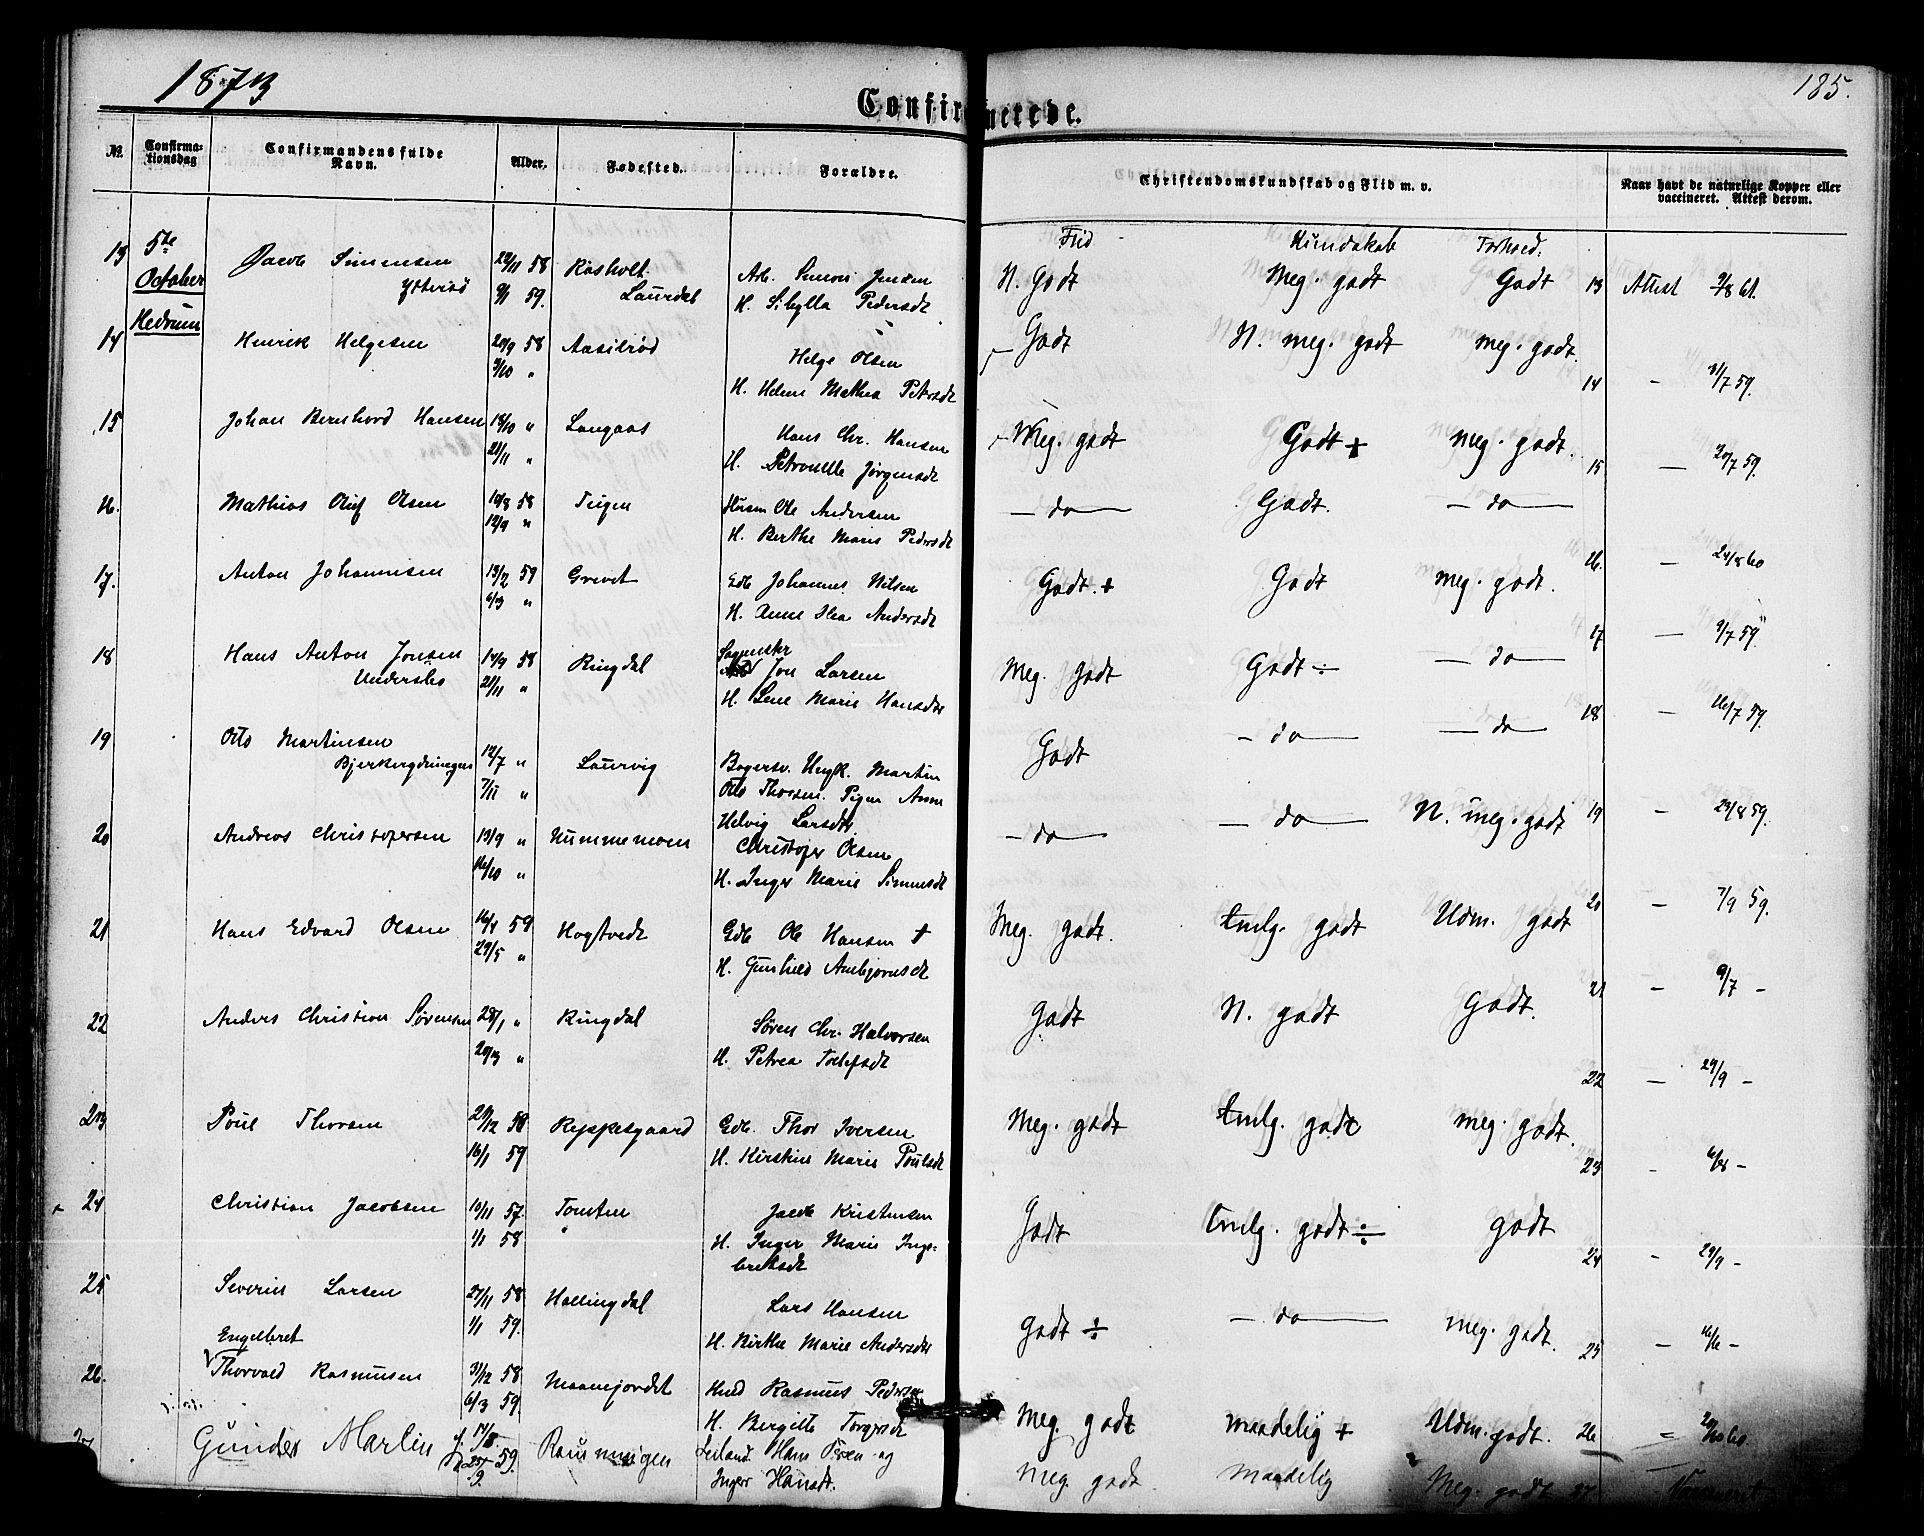 1873
185.
Confirmerede.
No.
Confirma-
tionsdag
Confirmandens fulde
Navn.
Alder.
Fødested.
Forældre.
Christendomskundskab og Flid m. v.
Naar havt de naturlige Kopper eller
vaccineret. Attest derom.
Flid Kundskab Forhold.
13 5te October Hedrum
Jacob Simensen 22/11 58 Rosholt. Arb. Simon Jensen N. Godt Meg. godt Godt 13 Attest 2/8 61.
Yttersø 9/1 59. Laurdal H. Sibylla Pedersdt
14 Henrik Helgesen 20/9 58 Aasilrød Helge Olsen Godt N. meg. godt meg. godt. 14 – 31/7 59.
3/10 " H. Helene Mathea Petersdt
15 Johan Bernhard Hansen 18/10 " Langaas Hans Chr. Hansen Meg. godt Godt + meg. godt. 15 – 20/7 59.
21/11 " H. Petronelle Jørgensdt
16. Mathias Oluf Olsen 10/8 58 Teigen Husm Ole Andersen – do – Godt. – do – 16. – 24/8 60
12/9 " H. Berthe Marie Pedersdt
17. Anton Johannesen 13/2 59 Grevet Gdb Johannes Nilsen Godt. + Godt meg. godt. 17 – 9/7 59.
6/3 " H. Anne Andersdt
18 Hans Anton Jonsen 14/9 58 Ringdal Sagmester Jon Larsen Meg. godt Godt ÷ – do – 18 – 16/7 59.
Undersbo 21/11 " H. Lene Marie Hansdt
19 Otto Martinsen 12/7 " Laurvig Bagersv. Ungk. Martin Godt – do – – do – 19 – 23/8 59.
7/11 " Otto Thorsen. Pigen Anne
Helvig Larsdt
20 Andreas Christofersen 13/9 " Nummemoen Christofer Olsen – do – – do – N. meg. godt 20 – 7/9 59.
16/10 " H. Inger Marie Simensdt
21 Hans Edvard Olsen 16/1 59 Hogstvedt Gdb Ole Hansen † Meg. godt. Tmlg. godt Udm. godt 21 – 9/7 –
29/5 " H. Gunhild Anbjørnsdt
22 Anders Christian Sørensen 28/1 " Ringdal Søren Chr. Halvorsen Godt N. godt Godt. 22 – 29/9 –
20/3 " H. Petrea Tollefsdt
23 Poul Thorsen 29/12 58 Reppesgaard Gdb. Thor Iversen Meg. godt Tmlg. godt meg. godt. 23 – 6/8 –
16/1 59 H. Kirstine Marie Poulsdt
24 Christian Jacobsen 10/11 57. Tomten Jacob Kristensen Godt Tmlg. godt ÷ godt 24 – 29/9 –
1/1 58 " H. Inger Marie Inge-
bretsdt
25 Severin Larsen 27/11 58 Hallingdal Lars Hansen Godt ÷ – do – meg. godt. 25 –
1/1 59. H. Birthe Marie Andersdt
Engelbret
26. Thorvald Rasmusen 31/12 58 Maanejordet Husd Rasmus Pedersen Meg. godt maadelig + Udm. godt. 26 – 29/10 60.
6/3 59 H. Bergitte Torgersdt
27 Gunder Martin f. 14/8. Raunningen Leiland. Hans Iversen og Meg. godt. Maadelig Meg. godt 27 – Vaccineret
25/9 59. Inger Hansdt.